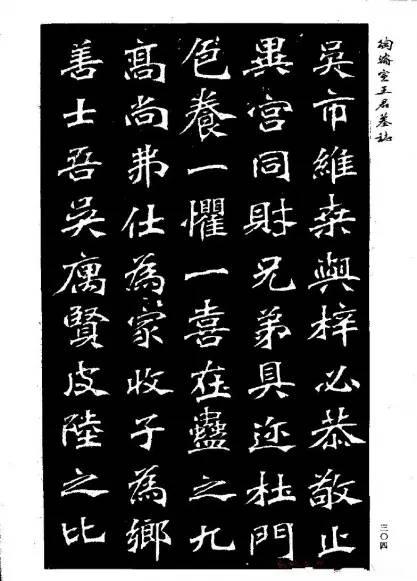 陶濬宣王君墓誌
吳市維桒與梓必恭敬止
異宮同財兄弟具迩杜門
色養一懼一喜在蠱之九
髙尚弗仕為家收子為鄉
善士吾吳庽賢皮陸之比
三〇四